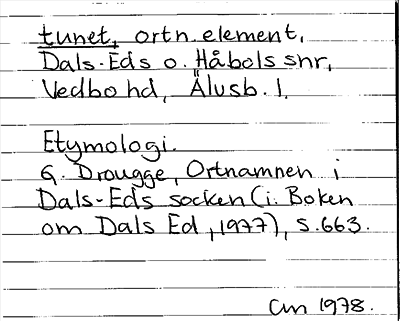 tunet, ortn.element,
Dals-Eds o. Håbols snr,
Vedbo hd, Älvsb. l.
Etymologi.
G. Drougge, Ortnamnen i
Dals-Eds socken (i: Boken
om Dals Ed, 1977), s. 663.
CM 1978.